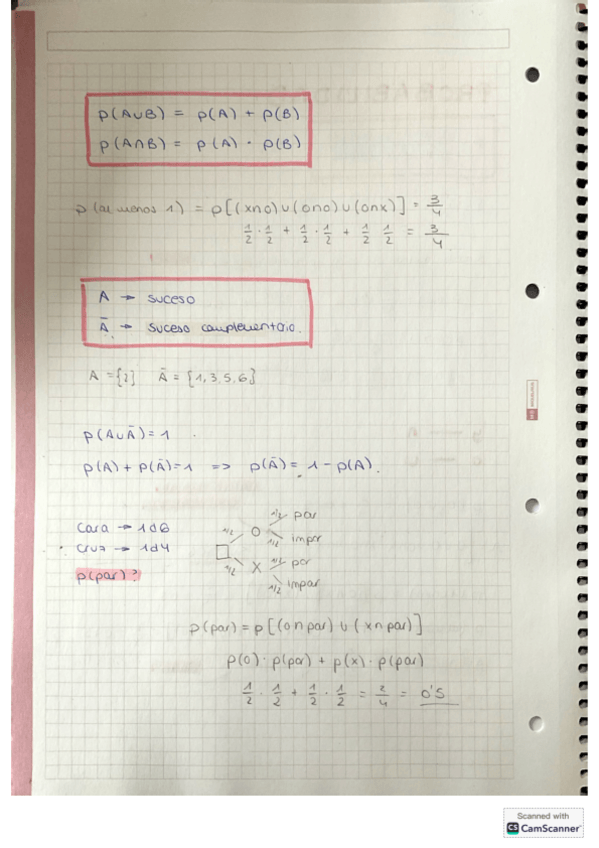 p(A∪B) = p(A) + p(B)
p(A∩B) = p(A) · p(B)
p(al menos 1) = p[(x∩o)∪(o∩o)∪(o∩x)] = 3/4
1/2 · 1/2 + 1/2 · 1/2 + 1/2 1/2 = 3/4
A → suceso
Ā → suceso complementario.
A = {2} Ā = {1,3,5,6}
p(A∪Ā) = 1
p(A) + p(Ā) = 1 => p(Ā) = 1 - p(A).
cara → 1d6
cruz → 1d4
p(par)?
1/2 O 1/2 par
1/2 impar
1/2 X 1/2 par
1/2 impar
p(par) = p[(o∩par) ∪ (x∩par)]
p(o) · p(par) + p(x) · p(par)
1/2 · 1/2 + 1/2 · 1/2 = 2/4 = 0'5
Scanned with
CS CamScanner